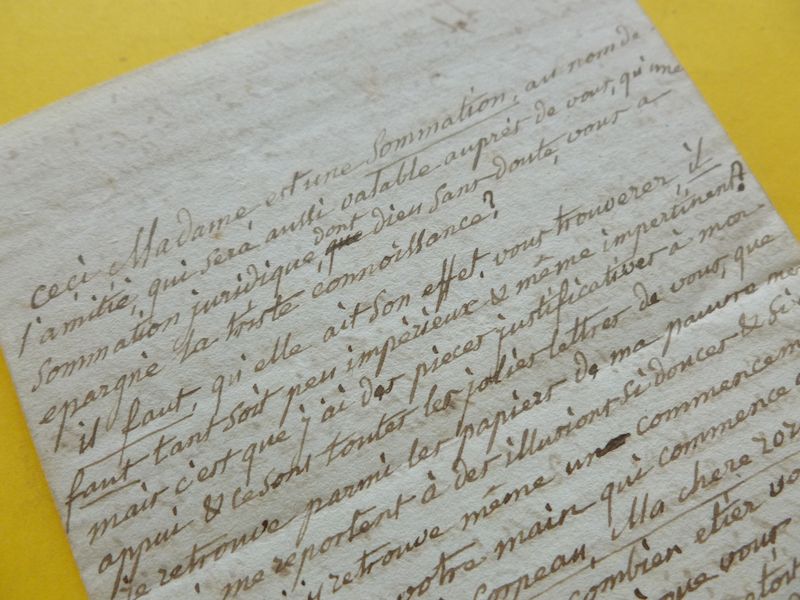 ceci Madame, est une Sommation, au nom de
l'amitié, qui sera aussi valable auprès de vous, qu'une
Sommation juridique, dont Dieu sans doute, vous a
epargné la triste connoissance?
il faut, qu'elle ait son effet. vous trouverez, il
faut tant soit peu impérieux & même impertinent?
mais c'est que j'ai des pieces justificatives à mon
appui & ce sont toutes les jolies lettres de vous, que
je retrouve parmi les papiers de ma pauvre
me reportent à des illusions si douces & si
retrouve même un commencem
votre main qui commence
Ma chere
combien etiez
que vous